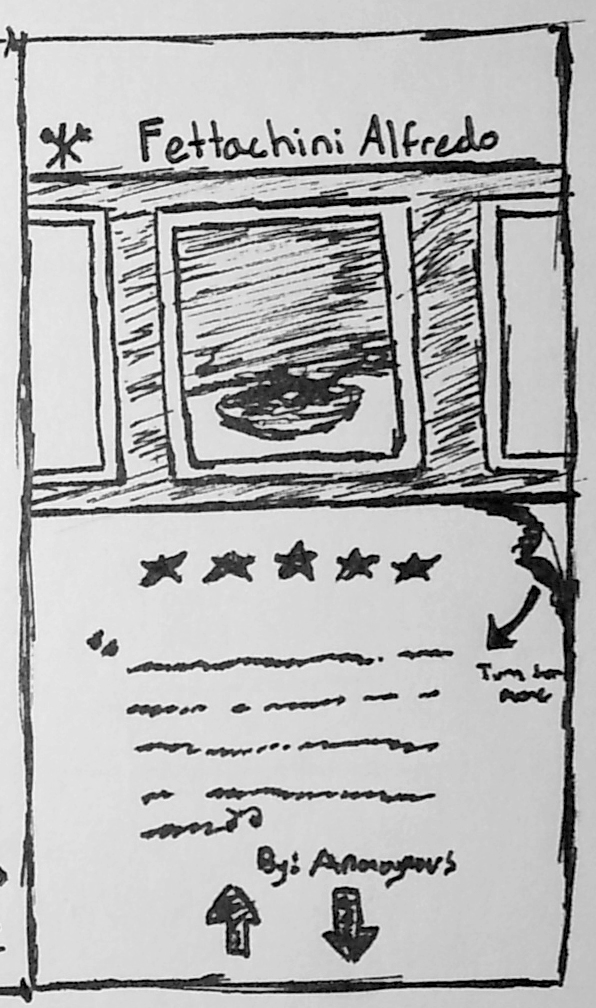 Fettachini Alfredo
Turn for
more
By: Anonoymous